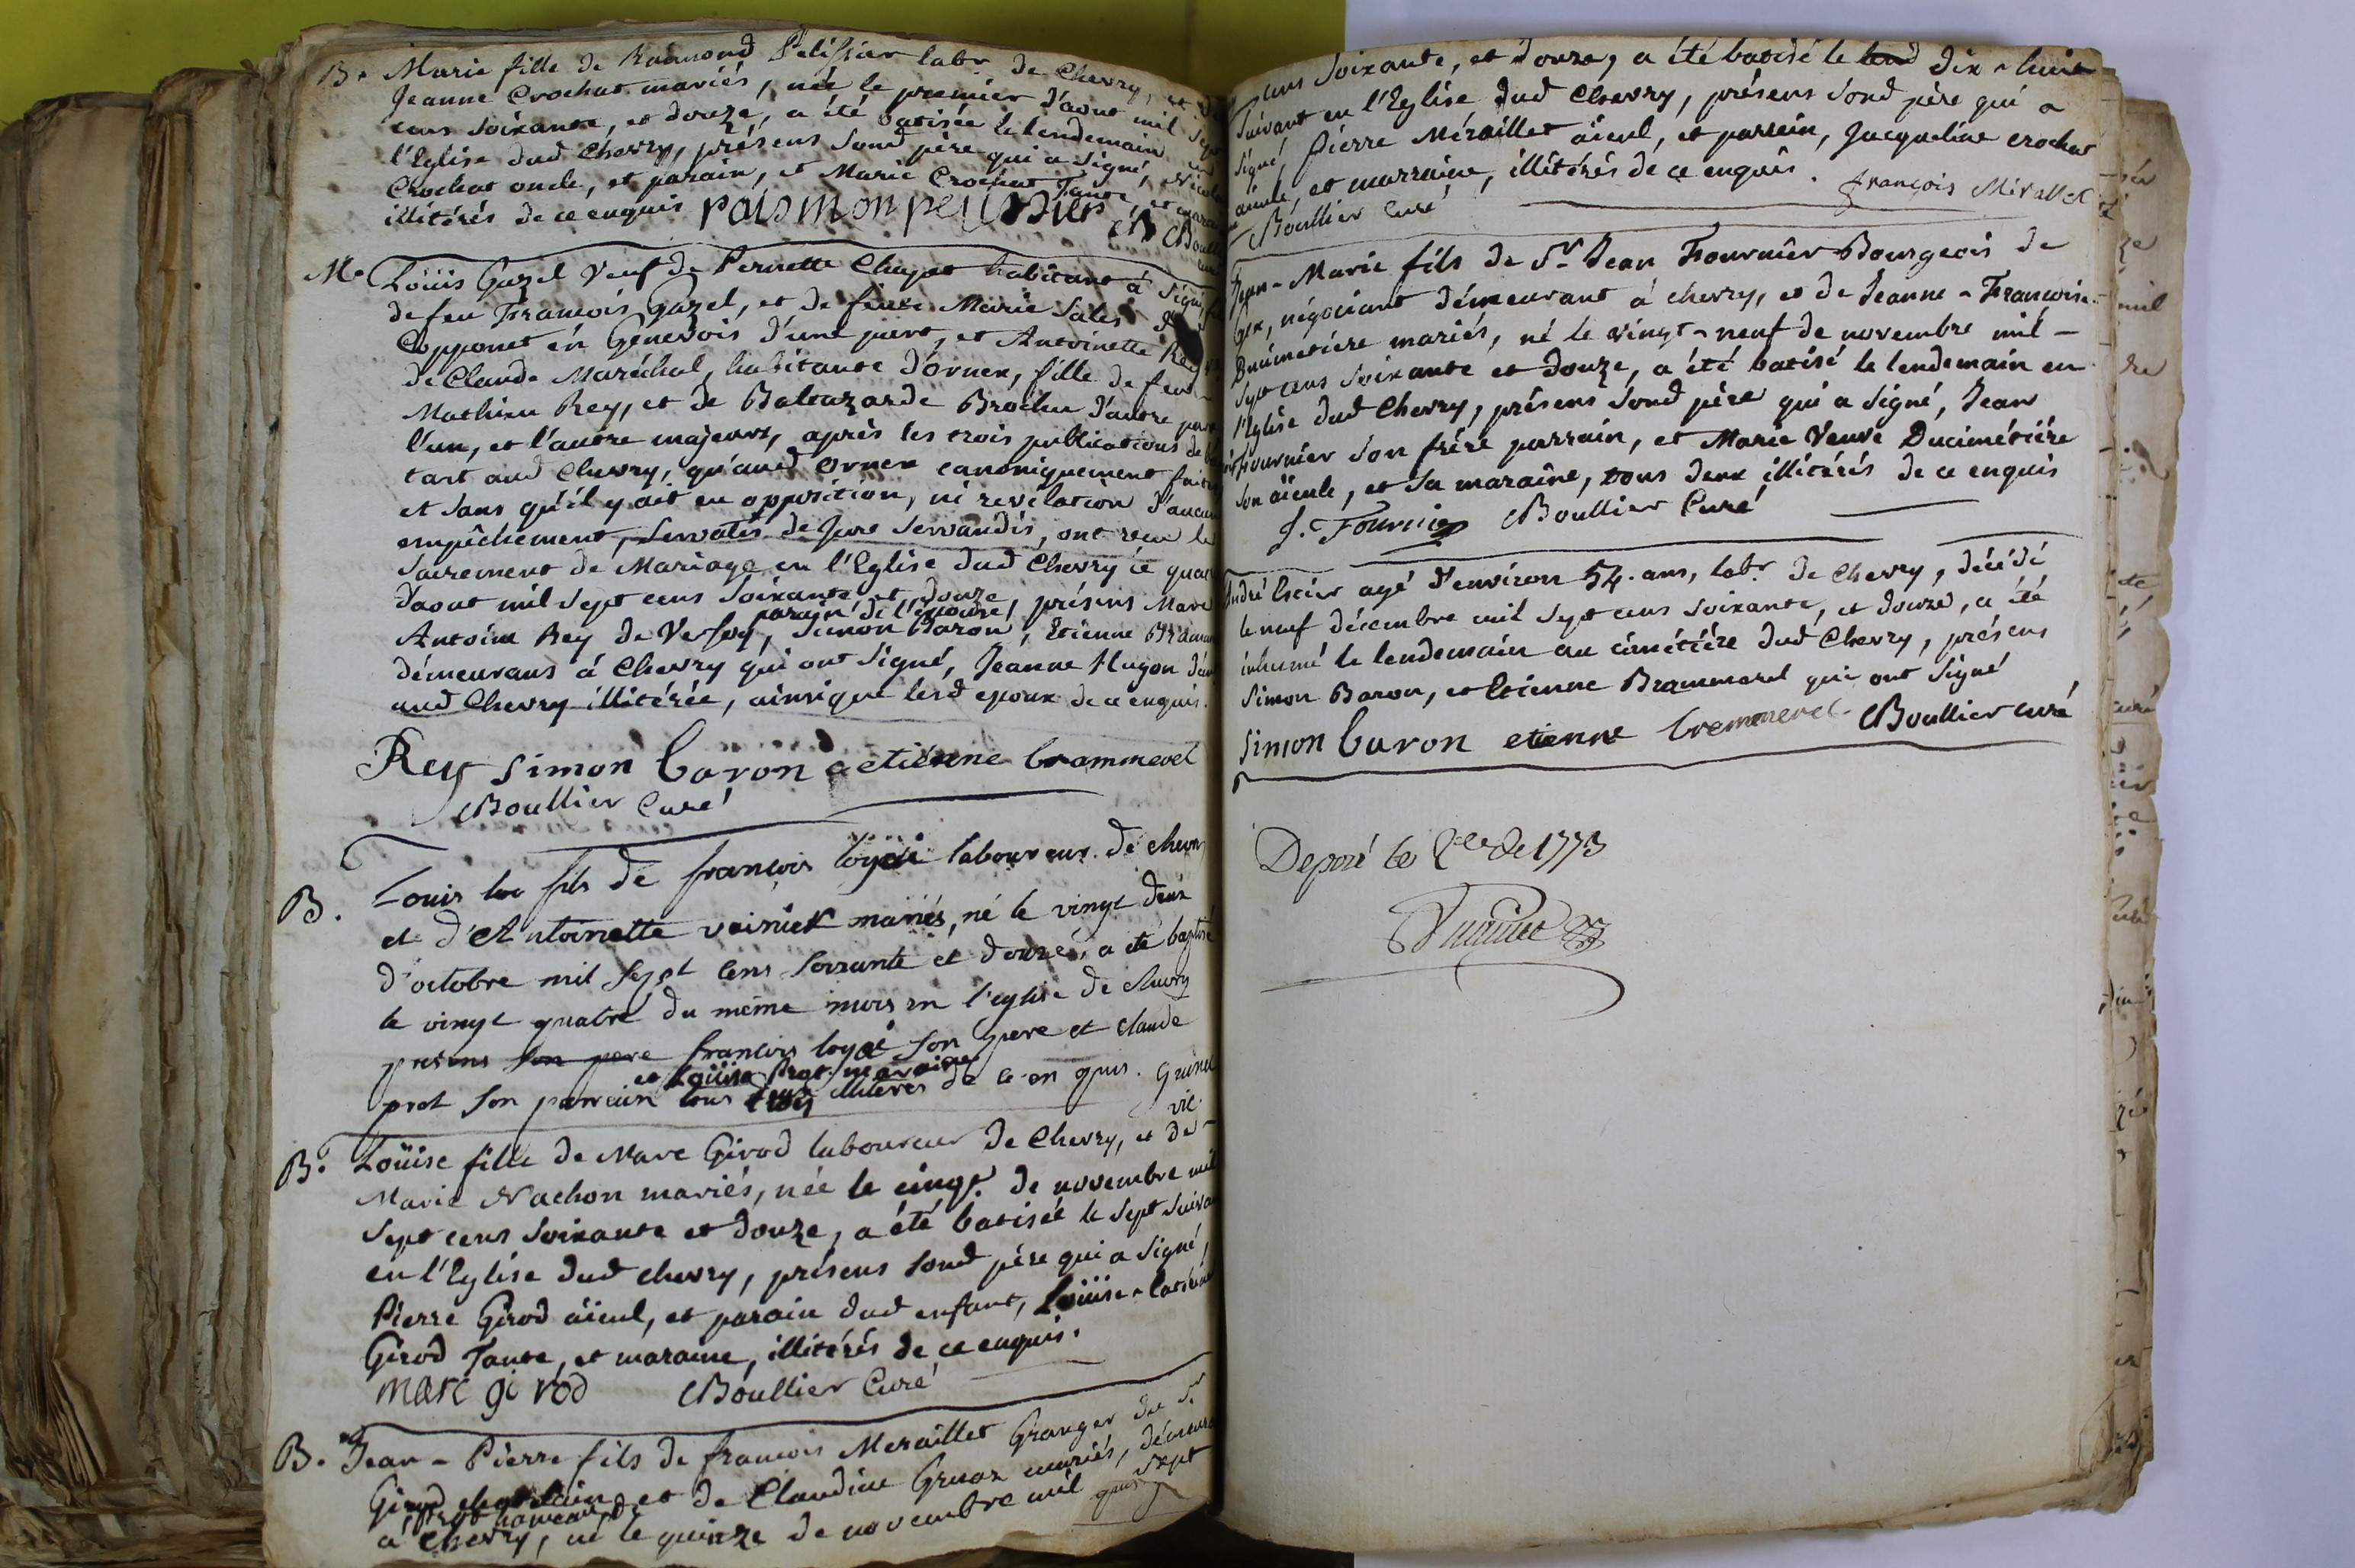 B. Marie fille de Raimond Pelissier labr de Chevry, et de
Jeanne Crochat mariés, née le premier d'aout mil sept
cens soixante, et douze, a été batisée le lendemain en
l'Eglise dud Chevry, présens sond père qui a signé, Nicolas
Crochat oncle, et parain, et Marie Crochat Tante, et
illitérés de ce enquis raismon pelissier
M. Loüis Gazel Veuf de Pernette Chapat habitant à
de feu François Gazel, et de feüe Marie Sales
Copponet én Genevois d'une part, et Antoinette Rey
de Claude Maréchal, habitante d'ornex, fille de feu
Mathieu Rey, et de Baltazarde Brochu d'autre part
l'un, et l'autre majeurs, après les trois publications de
tant aud Chevry, qu'aud Ornex canoniquement faites
et sans qu'il y ait eu opposition, ni revélation d'aucun
empêchement, servatis de jure servandis, ont reçu le
Sacrement de Mariage en l'Eglise dud Chevry ce quatre
d'aout mil sept cens soixante et douze, présens Marc
Antoine Rey de Versoy, parain de l'épouse, Simon Baron, Etienne
démeurans à Chevry qui ont signé, Jeanne Hugon
aud Chevry illitérée, ainsi que lesd epoux de ce enquis.
Rey simon baron etiénne brammerel
Boullier Curé
B. Louis fils de françois laboureur de chevry
et d'Antoinette mariés, né le vingt deux
d'octobre mil sept cens soixante et douze, a eté baptisé
le vingt quatre du même mois en l'eglise de chevry
presens son pere françois son pere et claude
et Loüise Prot maraine
prot son parrein tous trois illiteres de ce en quis.
vic.
B. Loüise fille de Marc Girod laboureur de Chevry, et de
Marie Nachon mariés, née le cinq. de novembre mil
sept cens soixante et douze, a été batisée le sept suivant
en l'Eglise dud chevry, présens sond père qui a signé,
Pierre Girod aïeul, et parain dud enfant, Loüise-
Girod Tante, et maraine, illitérés de ce enquis.
marc gi rod Boullier Curé
B. Jean-Pierre fils de francois Meraillet Granger du Sr
Girod et de Claudine Gruaz mariés,
à Prost hameau de
Chevry, né le quinze de novembre mil sept
cens soixante, et douze, a été batisé le dix-huit
suivant en l'Eglise dud Chevry, présens sond père qui a
signé, Pierre Méraillet aïeul, et parrein, Jacqueline crochat
aieule, et marraine, illitérés de ce enquis. François Mirallet
Boullier Curé
Jean-Marie fils de Sr Jean Fournier Bourgeois de
Gex, négociant démeurant à chevry, et de Jeanne-Françoise
Ducimetiére mariés, né le vingt-neuf de novembre mil
sept cens soixante et douze, a été batisé le lendemain en
l'Eglise dud Chevry, présens sond père qui a signé, Jean
Fournier son frére parrain, et Marie Veuve Ducimétiére
son aïeule, et sa maraine, tous deux illitérés de ce enquis
J. Fournier Boullier Curé
André agé d'environ 54. ans, labr. de Chevry, décédé
le neuf décembre mil sept cens soixante, et douze, a été
inhumé le lendemain au cimétiére dud Chevry, présens
Simon Baron, et Etienne Brammerel qui ont signé
simon baron etienne bremmerel Boullier curé
Deposé le de 1773